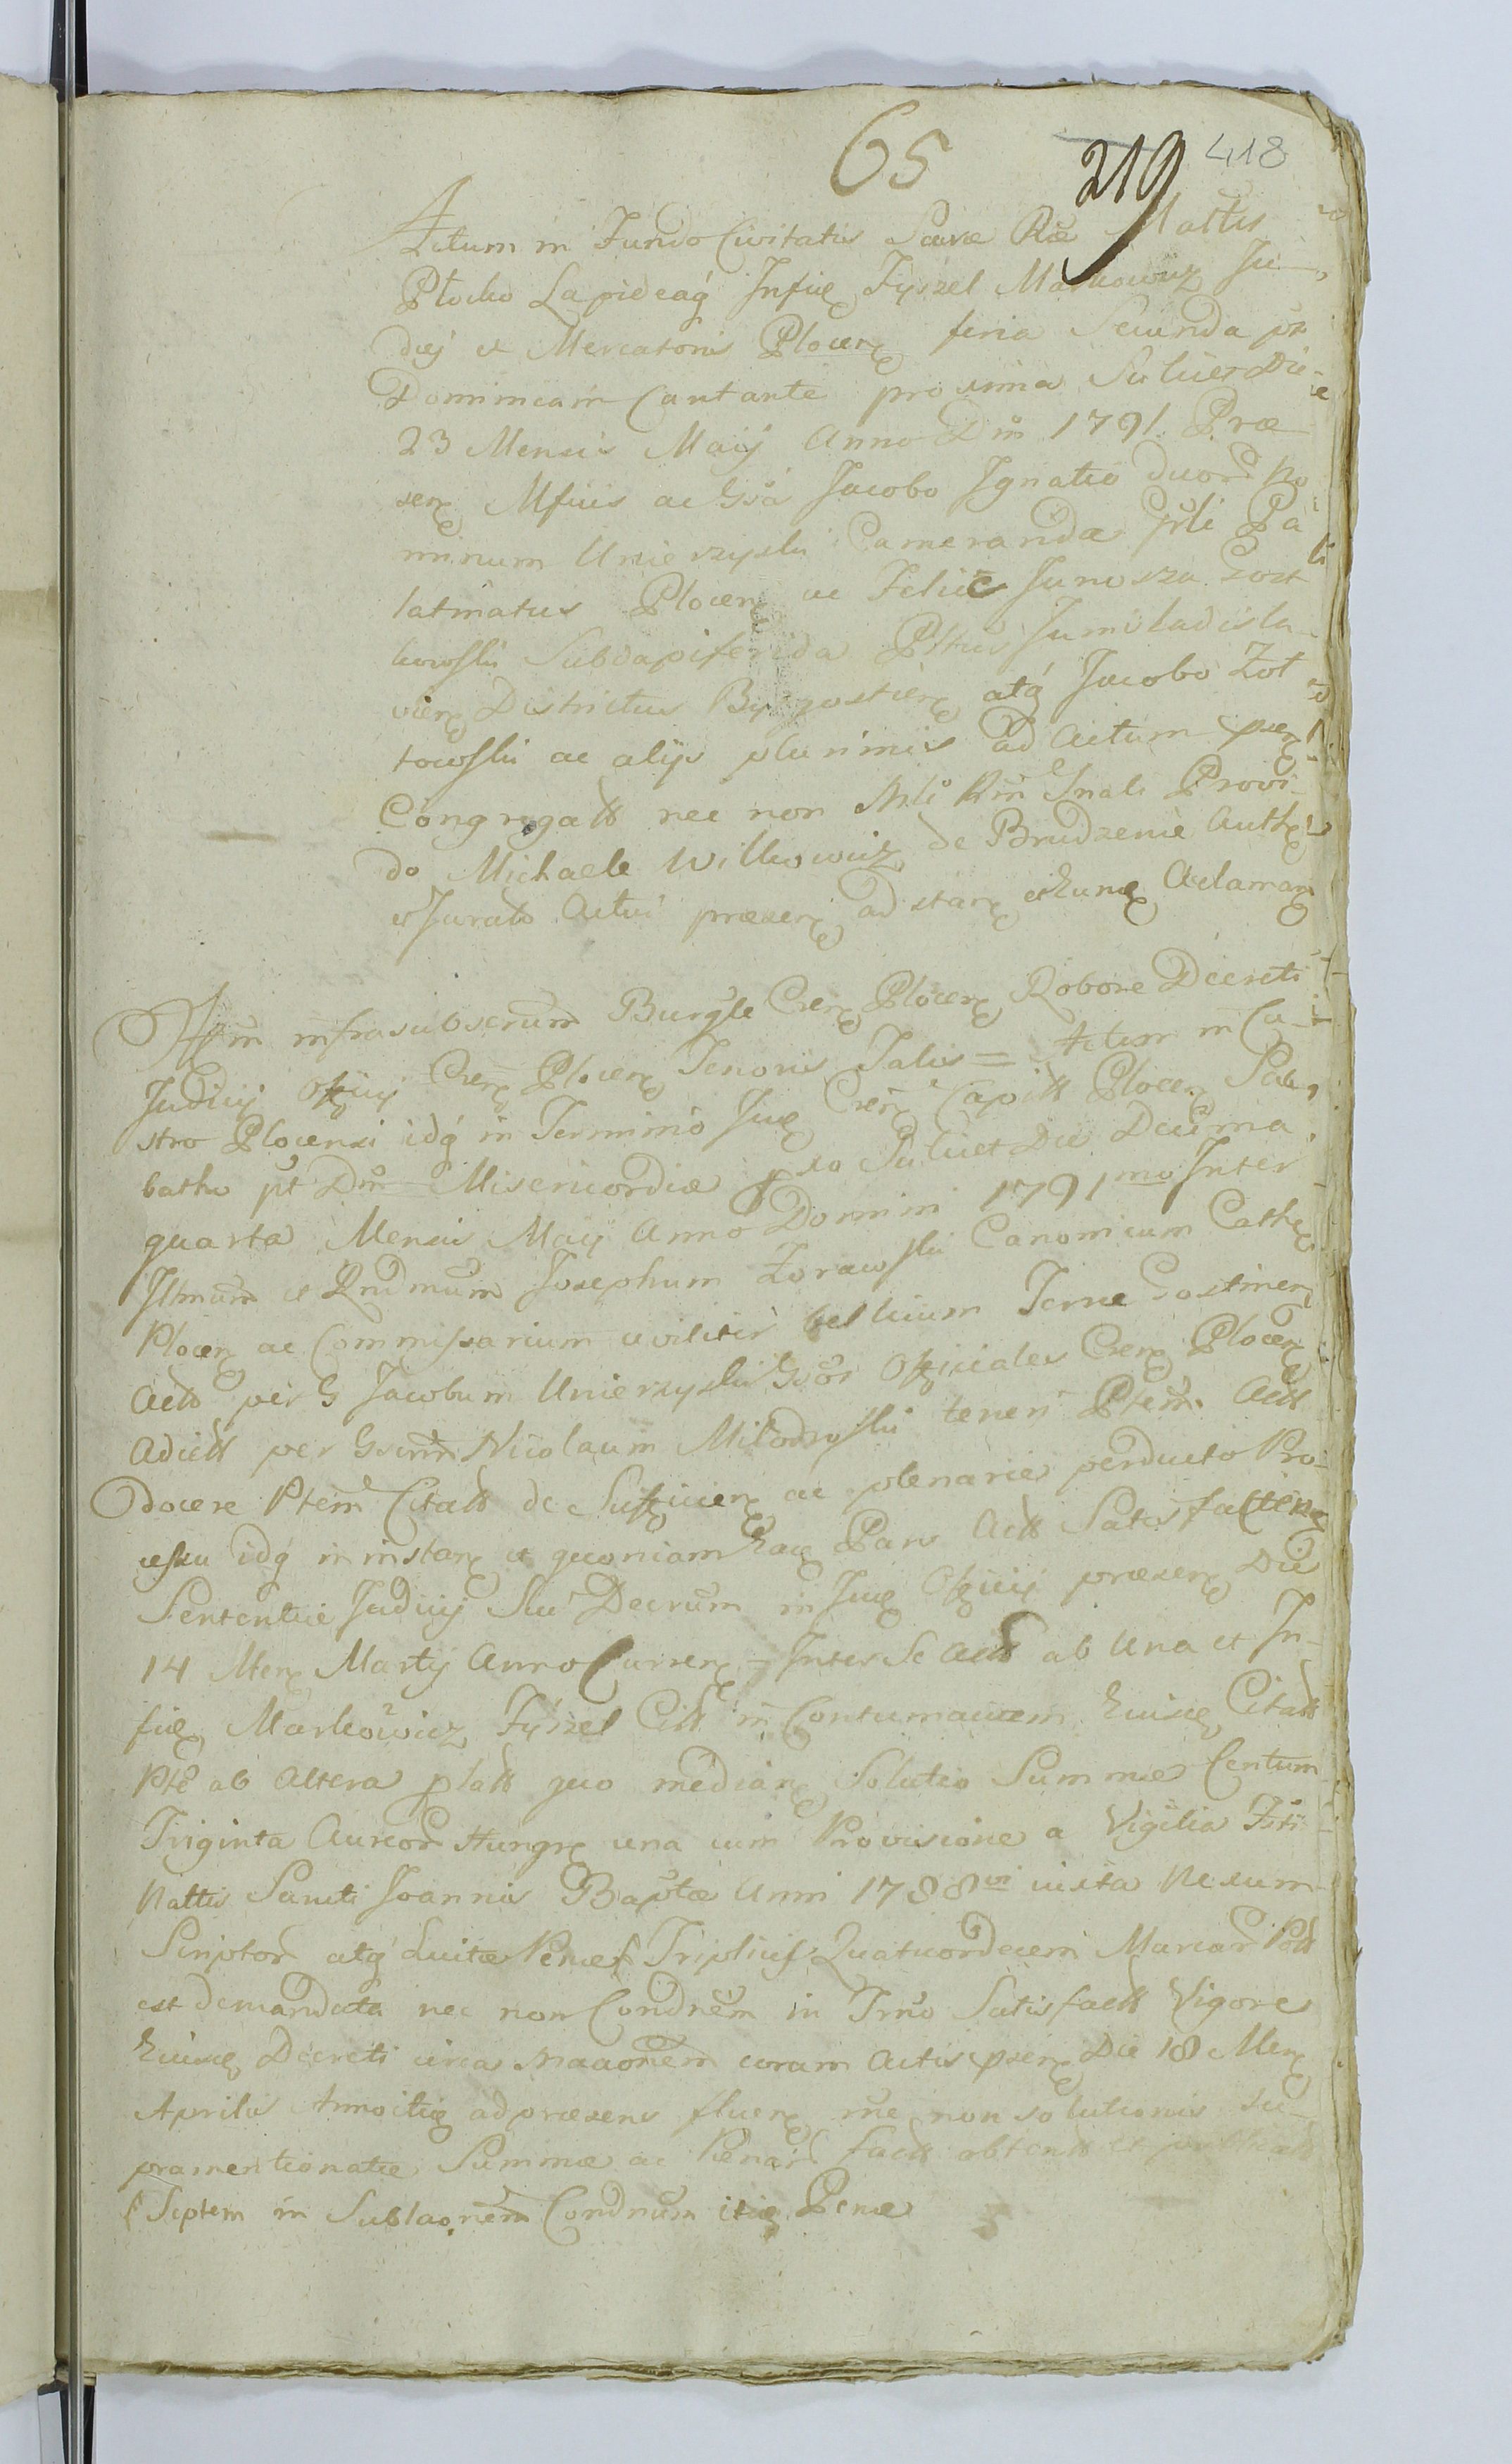 65 219 418
Actum in Fundo Civitatis Sacræ Ræ Mattis
Płocko Lapideaq́ Infid Fyszel Markowicz Ju-
dęj et Mercatoris Plocen feria Secunda pt
Dominicam Cantante proxima Scilicet Die
23 Mensis Maij Anno Dni 1791 Præ
sen Mfcis ac Gsis Jacobo Ignatio duor No
minum Unierzyski Camerarida Pa
latinatus Plocen ac Felice Junosza Gost
kowski Subdapiferida Pttus Juniwladisla
vien Districtus Bydgostien atq́ Jacobo Zot
towski ac alijs plurimis ad Actum psen
Congregatt nec non Mnli Rni Gnali Provi-
do Michaele Wilkowicz de Brudzenie Auth
et Jurato Actui præsen adstan et hunc Aclaman
Nos infrascubscrum Burgle Cren Plocen Robore Decreti
Judicij Officij Cren Plocen Tenoris Talis = Actum in Ca-
stro Plocensi idq́ in Termino Jud Cren Capitt Plocen Sab-
batho pt Dm Misericordiæ pxo Scilicet Die Decima
quarta Mensis Maij Anno Domini 1791mo Inter
Illmum et Rndmum Josephum Zorawski Canonicum Cathe
Plocen ac Commissarium civiliter bellicum Terræ Gostinen
Actt per G Jacobum Unierzyski Gsos Officiales Cren Plocen
Adictt per Gsum Nicolaum Milodzyski teneri Ptem Actt
docere Ptem Citatt de Sufficien ac plenarie perducto Pro-
cessu idq́ in instan et quoniam hac Pars Actt Satisfacien
Sententiæ Judicij Seu Decrum in Jud Officij præsen Die
14 Men Martij Anno Curren Inter Se Actt ab Una et In-
fid Markowicz Fyszel Citt in Contumaciam huius Citatt
Pte ab Altera platt quo median Solutio Summæ Centum
Triginta Aureor Hungr una cum Provisione a Vigilia Fsti
Nattis Sancti Joannis Baptæ Anni 1788vi iuxta Nexum
Scriptor atq́ Luitæ Penæ Triplicis Quatuordecem Marcar Pott
est demandata nec non Condnem in Trno Satisfactt Vigore
huius Decreti circa coram Actis psen Die 18 Men
Aprilis Anno itid ad præsens fluen me non solutionis Su-
pramentionatæ Summæ ac Penar factt obtentt et publicatt
Septem in Sublaonem Condnum itid Penæ